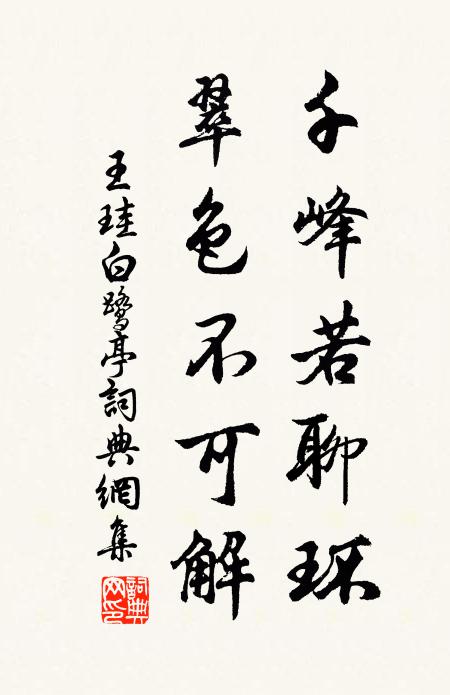 千峰若聊环
翠色不可解
王珪白鷺亭詞典網集
詞典网印